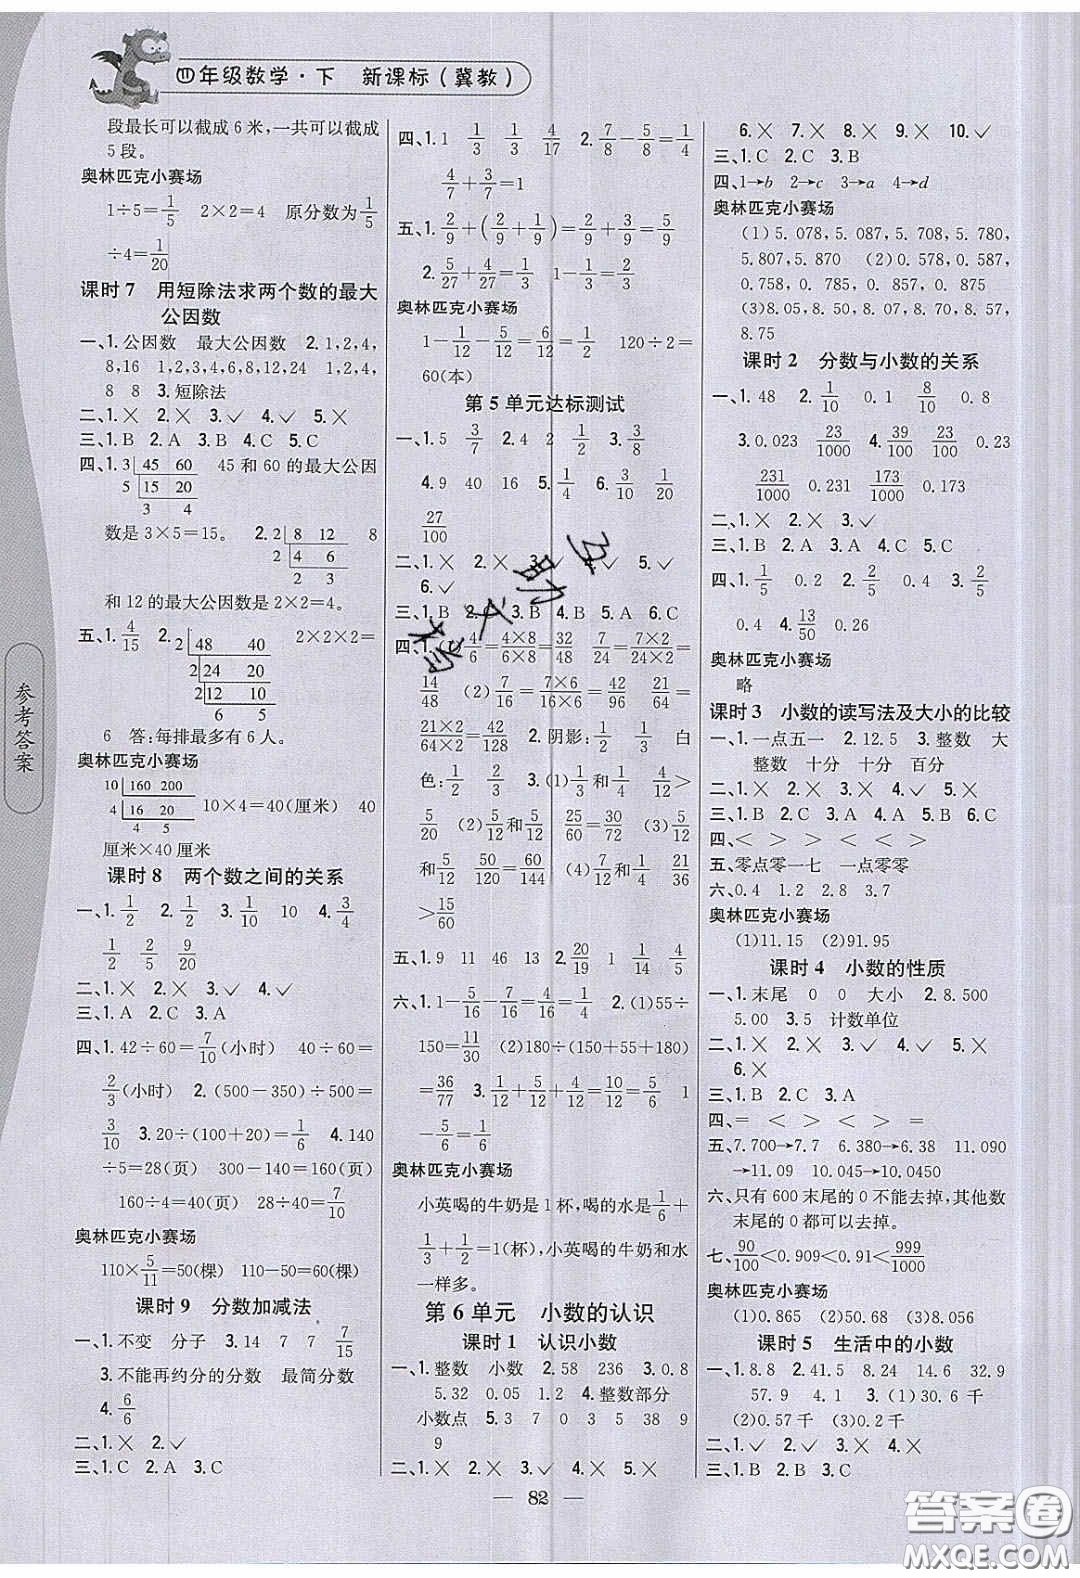 四年级数学·下 新课标(冀教)
段最长可以截成6米,一共可以截成
5段。
奥林匹克小赛场
1÷5=1/5 2×2=4 原分数为1/5
÷4=1/20
课时7 用短除法求两个数的最大
公因数
一、1.公因数 最大公因数 2.1,2,4,
8,16 1,2,3,4,6,8,12,24 1,2,4,
8 8 3.短除法
二、1.× 2.× 3.✓ 4.✓ 5.✓
三、1.B 2.A 3.B 4.C 5.A
四、1. 3 45 60 45和60的最大公因
5 15 20
3 4
数是3×5=15。 2. 2 8 12 8
2 4 6
2 3
和12的最大公因数是2×2=4。
五、1.4/15 2. 2 48 40 2×2×2=
2 24 20
2 12 10
6 5
6 答:每排最多有6人。
奥林匹克小赛场
10 160 200
4 16 20 10×4=40(厘米) 40
4 5
厘米×40厘米
课时8 两个数之间的关系
一、1.1/2 2.1/2 3.1/10 10 4.3/4
1/2 2/5 9/20
二、1.× 2.× 3.✓ 4.✓
三、1.A 2.C 3.A
四、1.42÷60=7/10(小时) 40÷60=
2/3(小时) 2.(500-350)÷500=
3/10 3.20÷(100+20)=1/6 4.140
÷5=28(页) 300-140=160(页)
160÷4=40(页) 28÷40=7/10
奥林匹克小赛场
110×5/11=50(棵) 110-50=60(棵)
课时9 分数加减法
一、1.不变 分子 2.14 7 7 7/15
3.不能再约分的分数 最简分数
4.6/6
二、1.× 2.✓
三、1.C 2.A 3.C
四、1.1 1/3 1/3 4/17 2.7/8-5/8=1/4
4/7+3/7=1
五、1.2/9+(2/9+1/9)=2/9+3/9=5/9
2.5/27+4/27=1/3 1-1/3=2/3
奥林匹克小赛场
1-1/12-5/12=6/12=1/2 120÷2=
60(本)
第5单元达标测试
一、1.5 3/7 2.4 2 1/2 3.3/8
4.9 40 16 5.1/4 6.3/10 1/20
27/100
二、1.× 2.× 3.✓ 4.✓ 5.✓
6.✓
三、1.B 2.A 3.B 4.B 5.A 6.C
四、1.(1)4/6=4×8/6×8=32/48 7/24=7×2/24×2=
14/48 (2)7/16=7×6/16×6=42/96 21/64=
21×2/64×2=42/128 2.阴影:1/2 1/4 白
色:1/2 3/4 3.(1)1/3和1/4 4/12>
5/20 (2)5/12和5/12 25/60=60/144 (3)5/12
和5/12 50/120=60/144 (4)7/12和1/4 21/36
>15/60
五、1.9 11 46 13 2.20/19 1 14/15
六、1.1-5/16-7/16=4/16=1/4 2.(1)55÷
150=11/30 (2)180÷(150+55+180)
=36/77 3.1/12+5/12+4/12=10/12=5/6 1
-5/6=1/6
奥林匹克小赛场
小英喝的牛奶是1杯,喝的水是1/6+
1/3+1/2=1(杯),小英喝的牛奶和水
一样多。
第6单元 小数的认识
课时1 认识小数
一、1.整数 小数 2.58 236 3.0.8
5.32 0.05 1.2 4.整数部分
小数点 5.3 7 0 3 5 38
9
二、1.× 2.× 3.✓ 4.× 5.×
6.× 7.× 8.× 9.× 10.✓
三、1.C 2.C 3.B
四、1→b 2→c 3→a 4→d
奥林匹克小赛场
(1)5.078,5.087,5.708,5.780,
5.807,5.870 (2)0.578,0.587,
0.758,0.785,0.857,0.875
(3)8.05,8.50,8.07,8.70,8.57,
8.75
课时2 分数与小数的关系
一、1.48 2.1/10 0.1 8/10 0.8
3.0.023 23/100 4.39/100 23/100 0.23
231/1000 0.231 173/1000 0.173
二、1.× 2.× 3.✓
三、1.B 2.A 3.A 4.C 5.C
四、1.1/5 0.2 2.2/5 2/5 3.2/5
0.4 4.13/50 0.26
奥林匹克小赛场
略
课时3 小数的读写法及大小的比较
一、1.一点五一 2.12.5 3.整数 大
整数 十分 十分 百分
二、1.× 2.× 3.× 4.✓ 5.×
三、1.B 2.C 3.B 4.A 5.C
四、< > > < < >
五、零点零一七 一点零零
六、0.4 1.2 2.8 3.7
奥林匹克小赛场
(1)11.15 (2)91.95
课时4 小数的性质
一、1.末尾 0 0 大小 2.8.500
5.00 3.5 计数单位
二、1.× 2.× 3.✓ 4.✓ 5.×
6.×
三、1.B 2.C 3.A
四、= < > < > =
五、7.700→7.7 6.380→6.38 11.090
→11.09 10.0450→10.045
六、只有600末尾的0不能去掉,其他数
末尾的0都可以去掉。
七、90/100<0.909<0.91<999/1000
奥林匹克小赛场
(1)0.865 (2)50.68 (3)8.056
课时5 生活中的小数
一、1.8.8 2.41.5 8.24 14.6 32.9
57.9 4.1 3.(1)30.6千
(2)0.57千 (3)0.2千
二、1.✓ 2.✓ 3.× 4.×
三、1.B 2.C 3.B
参考答案
82
答案圈
MXQE.COM